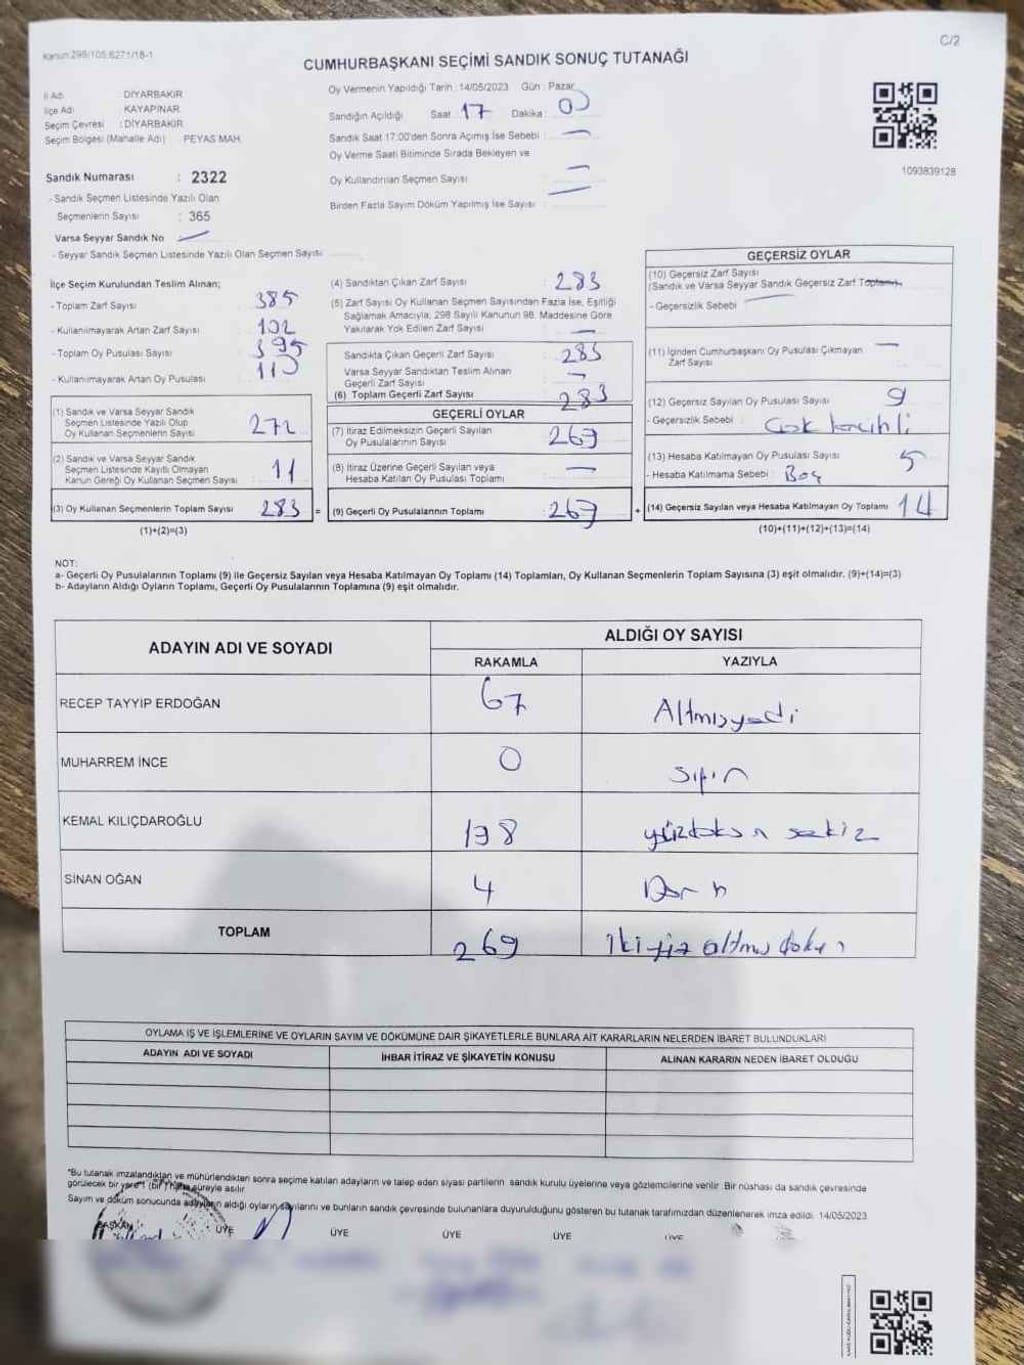 Kanun:298/105,6271/18-1
C/2
CUMHURBAŞKANI SEÇİMİ SANDIK SONUÇ TUTANAĞI
İl Adı DİYARBAKIR
İlçe Adı KAYAPINAR
Seçim Çevresi : DİYARBAKIR
Seçim Bölgesi (Mahalle Adı) PEYAS MAH.
Sandık Numarası : 2322
- Sandık Seçmen Listesinde Yazılı Olan
Seçmenlerin Sayısı : 365
Varsa Seyyar Sandık No —
- Seyyar Sandık Seçmen Listesinde Yazılı Olan Seçmen Sayısı
Oy Vermenin Yapıldığı Tarih : 14/05/2023 Gün : Pazar
Sandığın Açıldığı Saat 17 Dakika : 0
Sandık Saat 17:00'den Sonra Açımış İse Sebebi : —
Oy Verme Saati Bitiminde Sırada Bekleyen ve
Oy Kullandırılan Seçmen Sayısı —
Birden Fazla Sayım Döküm Yapılmış İse Sayısı : —
1093839128
İlçe Seçim Kurulundan Teslim Alınan;
- Toplam Zarf Sayısı 385
- Kullanılmayarak Artan Zarf Sayısı 102
- Toplam Oy Pusulası Sayısı 395
- Kullanılmayarak Artan Oy Pusulası
(1) Sandık ve Varsa Seyyar Sandık
Seçmen Listesinde Yazılı Olup
Oy Kullanan Seçmenlerin Sayısı 272
(2) Sandık ve Varsa Seyyar Sandık
Seçmen Listesinde Kayıtlı Olmayan
Kanun Gereği Oy Kullanan Seçmen Sayısı 11
(3) Oy Kullanan Seçmenlerin Toplam Sayısı 283 =
(1)+(2)=(3)
(4) Sandıktan Çıkan Zarf Sayısı 283
(5) Zarf Sayısı Oy Kullanan Seçmen Sayısından Fazla İse, Eşitliği
Sağlamak Amacıyla, 298 Sayılı Kanunun 98. Maddesine Göre
Yakılarak Yok Edilen Zarf Sayısı —
Sandıkta Çıkan Geçerli Zarf Sayısı 283
Varsa Seyyar Sandıktan Teslim Alınan
Geçerli Zarf Sayısı —
(6) Toplam Geçerli Zarf Sayısı 283
GEÇERLİ OYLAR
(7) İtiraz Edilmeksizin Geçerli Sayılan
Oy Pusulalarının Sayısı 269
(8) İtiraz Üzerine Geçerli Sayılan veya
Hesaba Katılan Oy Pusulası Toplamı —
(9) Geçerli Oy Pusulalarının Toplamı 269 +
GEÇERSİZ OYLAR
(10) Geçersiz Zarf Sayısı
(Sandık ve Varsa Seyyar Sandık Geçersiz Zarf Toplamı)
- Geçersizlik Sebebi —
(11) İçinden Cumhurbaşkanı Oy Pusulası Çıkmayan —
Zarf Sayısı
(12) Geçersiz Sayılan Oy Pusulası Sayısı 9
- Geçersizlik Sebebi : Çok tercihli
(13) Hesaba Katılmayan Oy Pusulası Sayısı 5
- Hesaba Katılmama Sebebi : Boş
(14) Geçersiz Sayılan veya Hesaba Katılmayan Oy Toplamı 14
(10)+(11)+(12)+(13)=(14)
NOT:
a- Geçerli Oy Pusulalarının Toplamı (9) ile Geçersiz Sayılan veya Hesaba Katılmayan Oy Toplamı (14) Toplamları, Oy Kullanan Seçmenlerin Toplam Sayısına (3) eşit olmalıdır. (9)+(14)=(3)
b- Adayların Aldığı Oyların Toplamı, Geçerli Oy Pusulalarının Toplamına (9) eşit olmalıdır.
ADAYIN ADI VE SOYADI ALDIĞI OY SAYISI
RAKAMLA YAZIYLA
RECEP TAYYİP ERDOĞAN 67 Altmışyedi
MUHARREM İNCE 0 Sıfır
KEMAL KILIÇDAROĞLU 198 yüzdoksan sekiz
SİNAN OĞAN 4 Dört
TOPLAM 269 ikiyüz altmış dokuz
OYLAMA İŞ VE İŞLEMLERİNE VE OYLARIN SAYIM VE DÖKÜMÜNE DAİR ŞİKAYETLERLE BUNLARA AİT KARARLARIN NELERDEN İBARET BULUNDUKLARI
ADAYIN ADI VE SOYADI İHBAR İTİRAZ VE ŞİKAYETİN KONUSU ALINAN KARARIN NEDEN İBARET OLDUĞU
*Bu tutanak imzalandıktan ve mühürlendikten sonra seçime katılan adayların ve talep eden siyasi partilerin sandık kurulu üyelerine veya gözlemcilerine verilir. Bir nüshası da sandık çevresinde
görülecek bir yere 1 (bir) hafta süreyle asılır.
Sayım ve döküm sonucunda adayların aldığı oyların sayılarını ve bunların sandık çevresinde bulunanlara duyurulduğunu gösteren bu tutanak tarafımızdan düzenlenerek imza edildi. 14/05/2023
BAŞKAN ÜYE ÜYE ÜYE ÜYE ÜYE